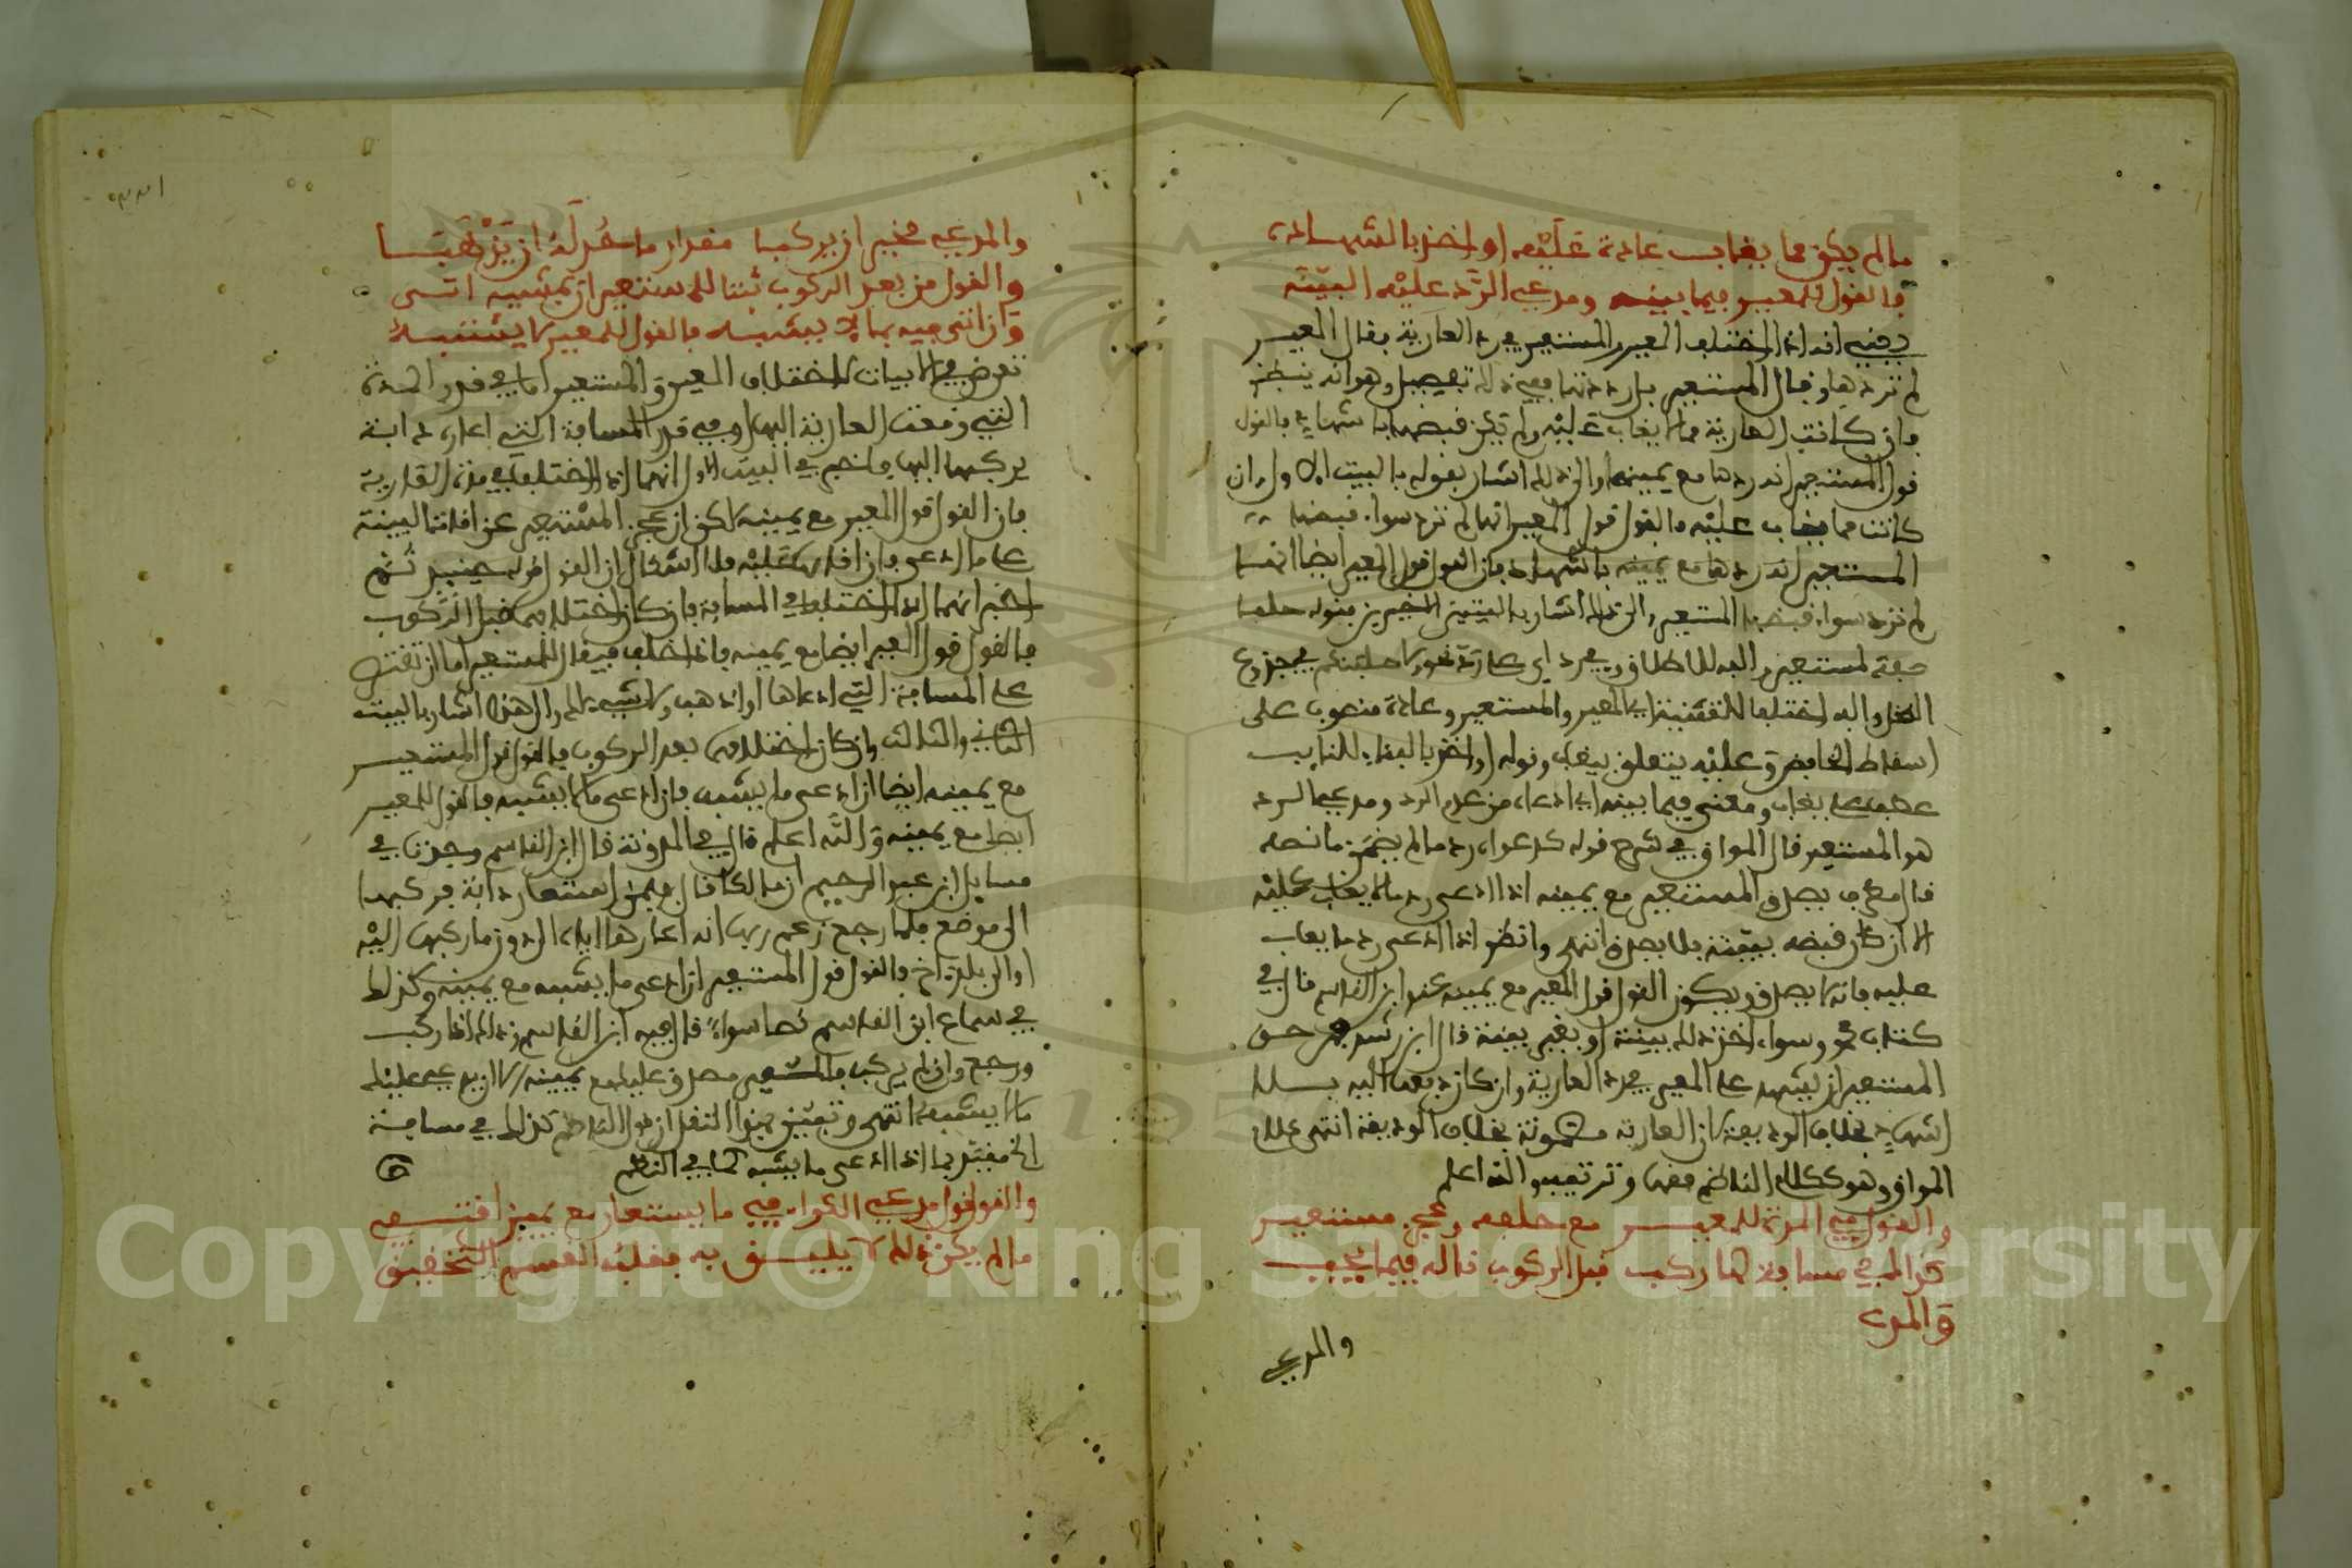 مالم يكن مما يغاب عادة عليه او اخذ بالشهادة
فالقول للمعير فيما بينه ومدعي الرد عليه البينة
يعني انه اذا اختلف المعير والمستعير في رد العارية فقال المعير
لم تردها وقال المستعير بل رددتها ففي ذلك تفصيل وهو انه ينظر
فان كانت العارية مما لا يغاب عليه ولم تكن قبضها باشهاد فالقول
قول المستعير انه ردها مع يمينه والى ذلك اشار بقوله بالبيت الاول وان
كانت مما يغاب عليه فالقول قول المعير انها لم ترد سواء قبضها
المستعير انه ردها مع يمينه باشهاد فان القول قول المعير ايضا انها
لم ترد سواء قبضها المستعير والى ذلك اشار بالبيتين الاخيرين بقوله حلفا
صفة لمستعير والفه للاطلاق وفي رد اي عارية
النخل والف اختلفا للتثنية اي المعير والمستعير وعادة منصوب على
اسقاط الخافض وعليه يتعلق بيغاب وقوله او اخذ بالبناء للنايب
عطف على يغاب ومعنى فيما بينه اي ادعاء من عدم الرد ومدعي الرد
هو المستعير قال المواق في شرح قوله كدعواه رد ما لم يضمن ما نصه
قال مطرف يصدق المستعير مع يمينه اذا ادعى رد ما لا يغاب عليه
الا ان كان قبضه ببينة فلا يصدق انتهى وانظر اذا ادعى رد ما يغاب
عليه فانه لا يصدق ويكون القول قول المعير مع يمينه عند ابن القاسم قال في
كتاب محمد وسواء اخذ ذلك ببينة او بغير بينة قال ابن رشد من حق
المستعير ان يشهد على المعير في رد العارية وان كان دفعها اليه بلا
اشهاد بخلاف الوديعة لان العارية مضمونة بخلاف الوديعة انتهى على
المواق وهو ككلام الناظم فقها وترتيبا والله اعلم
والقول في المدة للمعير مع حلفه وعجز مستعير
كذاك في مسافة لما ركب قبل الركوب ذا له فيما يجب
والمدعي
والمدعي
والمدعي مخير ان يركبا مقدار ما حد له ان يذهبا
والقول من بعد الركوب ثبتا للمستعير ان بمشبه اتى
وان اتى فيه بما لا يشبه فالقول للمعير لا يشتبه
تعرض في الابيات لاختلاف المعير والمستعير اما في قدر المدة
التي وقعت العارية اليها او في قدر المسافة التي اعاره دابة
يركبها اليها فاخبر في البيت الاول انهما اذا اختلفا في مدة العارية
فان القول قول المعير مع يمينه لكن ان عجز المستعير عن اقامة البينة
على ما ادعى وان اقامها عليه فلا اشكال ان القول قوله حينئذ ثم
اخبر انهما اذا اختلفا في المسافة فان كان اختلافهما قبل الركوب
فالقول قول المعير ايضا مع يمينه فاذا حلف فيقال للمستعير اما ان تقتصر
على المسافة التي ادعاها او اذهب ولا شيء لك والى هذا اشار بالبيت
الثاني والثالث وان كان اختلافهما بعد الركوب فالقول قول المستعير
مع يمينه ايضا ان ادعى ما يشبه فان ادعى ما لا يشبه فالقول للمعير
ايضا مع يمينه والله اعلم قال في المدونة قال ابن القاسم وجدنا في
مسايل ابن عبد الرحيم ان مالكا قال فيمن استعار دابة فركبها
الى موضع فلما رجع زعم ربها انه اعارها اياه الى دون ما ركبها اليه
او الى بلد اخر فالقول قول المستعير ان ادعى ما يشبه مع يمينه وكذلك
في سماع ابن القاسم نصا سواء قال فيه ابن القاسم وذلك اذا ركب
ورجع وان لم يركب فالمستعير مصدق عليه مع يمينه الا ان يدعي عليه
ما لا يشبه انتهى وتبين بهذا النقل ان قول الناظم كذلك في مسافة
الخ مقيد بما اذا ادعى ما يشبه كما في النظم
والقول قول مدعي الكراء في ما يستعار مع يمين اقتفي
مالم يكن ذلك لا يليق به فقلب القسم التحقيق